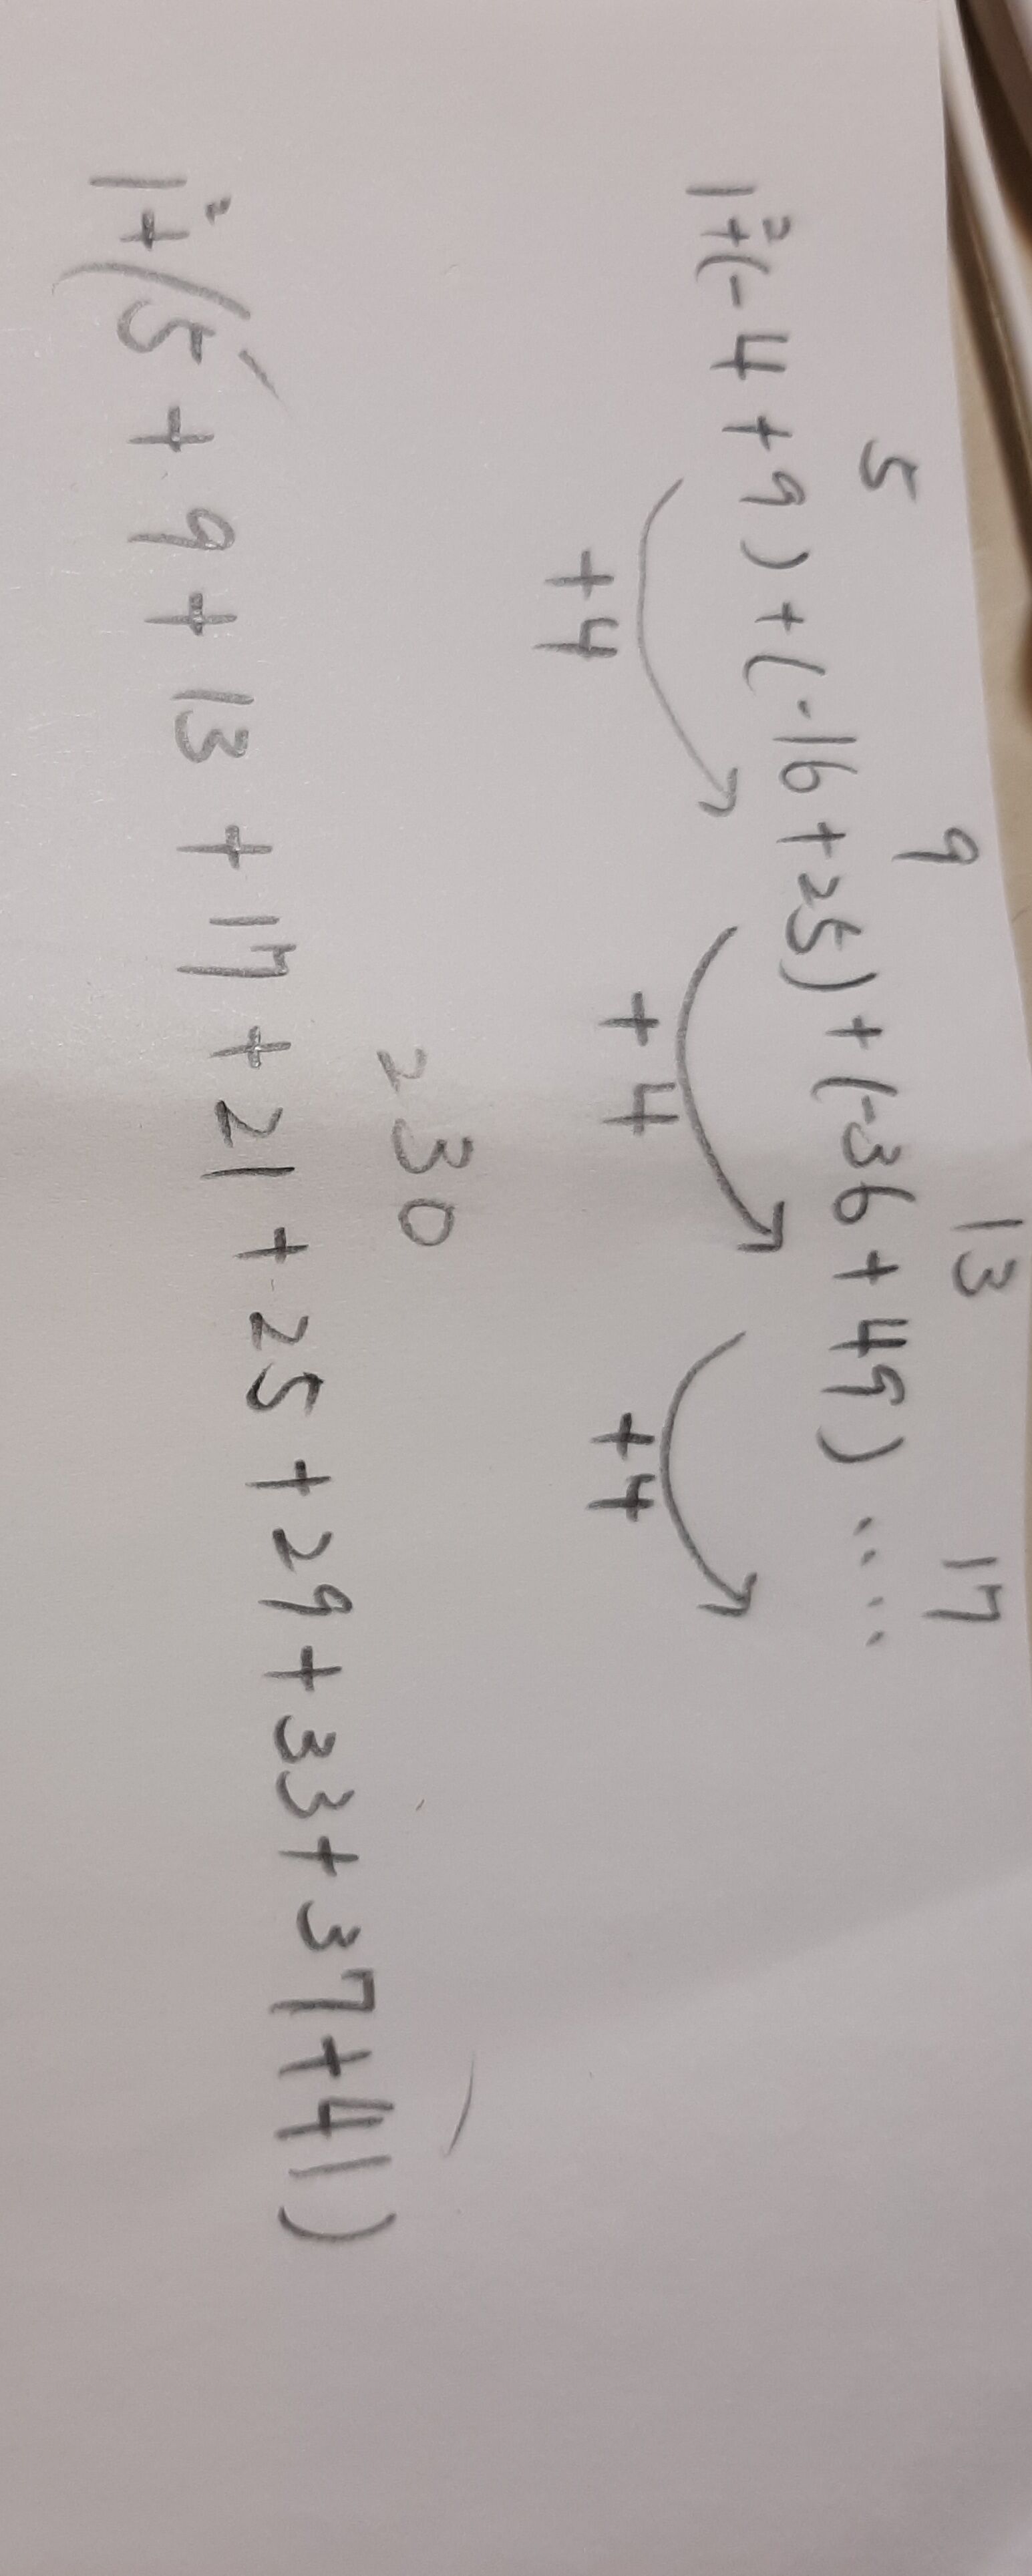 5 9 13 17
1²+(-4+9)+(-16+25)+(-36+49)....
+4 +4 +4
230
1²+(5+9+13+17+21+25+29+33+37+41)